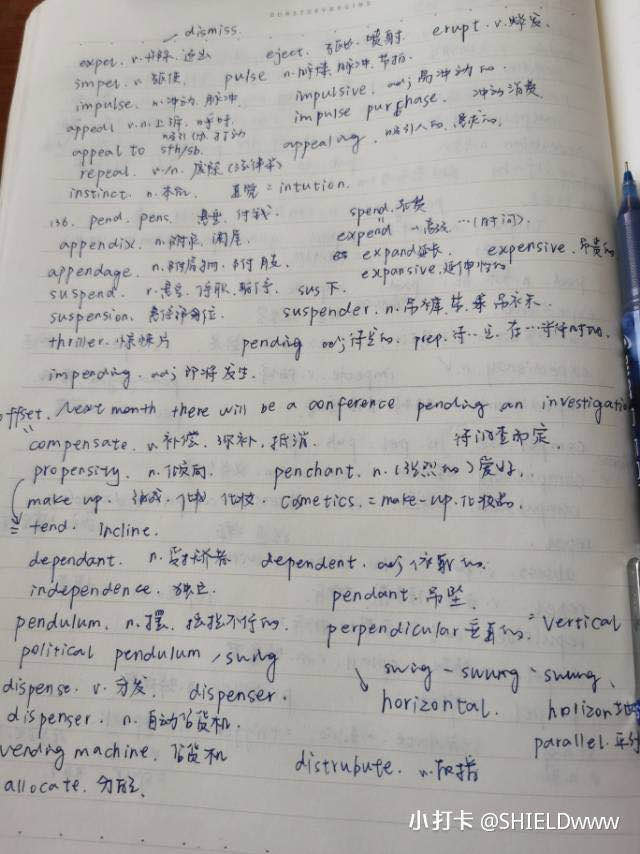 dismiss.
expel. v. 开除. 逐出 eject. 驱出. 喷射 erupt. v. 爆发.
impel. v. 驱使. pulse n. 脉搏. 脉冲. 节拍.
impulse. n. 冲动. 脉冲. impulsive. adj 易冲动的.
appeal v.n. 上诉. 呼吁. impulse purchase. 冲动消费
吸引人. 打动
appeal to sth/sb. appealing. 吸引人的.
repeal. v./n. 废除 (法律等)
instinct. n. 本能. 直觉 = intution.
136. pend. pens. 悬垂. 付钱 spend. 花费
appendix. n. 附录. 阑尾. expend 
appendage. n. 附属物. 附肢. expand 延长. expensive. 昂贵的
suspend. v. 悬 sus 下. expansive. 延伸性的
suspension. suspender. n. 吊
thriller. 惊悚片 pending adj 待 prep.
impending. adj 即将发生.
offset. Next month there will be a conference pending an investigation
compensate. v. 补偿. 弥补. 抵消. 待调查而定.
propensity. n. 倾向. penchant. n. (强烈的) 爱好.
make up. 化妆. cosmetics. = make-up. 化妆品.
= tend. Incline.
dependant. n. 受 dependent. adj 依靠的.
independence. 独立. pendant. 吊坠.
pendulum. n. 摆. 摇摆不 perpendicular 垂直的. = vertical
political pendulum / swing
swing - swung - swung.
dispense. v. 分发. dispenser. horizontal.
dispenser. n. 自动售货机.
parallel.
vending machine. 售货机 distrubute. v.
allocate. 分配.
小打卡 @SHIELDwww